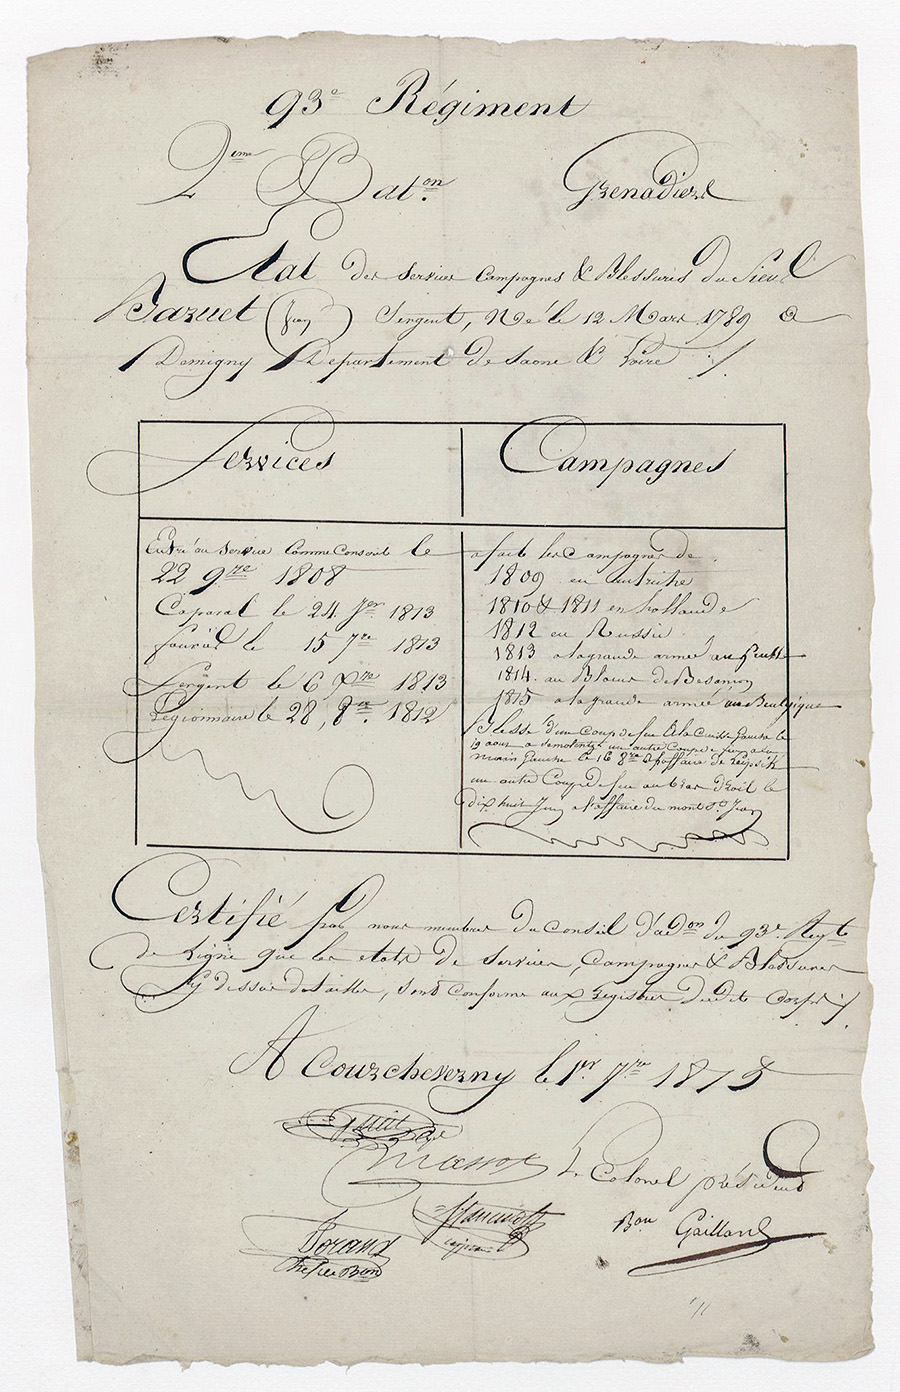 93e Régiment
2eme Baton. Grenadiers
Etat des services Campagnes & Blessures du Sieur
Bazuet (Jean) Sergent, Né le 12 Mars 1789 à
Demigny Département de Saone & Loire ./.
Services
Campagnes
Entré au service comme conscrit le
22 9bre 1808
Caporal le 24 Jer 1813
fourier le 15 7re 1813
Sergent le 6 Xre 1813
Légionnaire le 28, 8re. 1812
a fait les Campagnes de
1809 en autriche
1810 & 1811 en hollande
1812 en Russie
1813 a la grande armée
1814 au Blocus de Besançon
1815 a la grande armée en Belgique
Blessé d'un Coup de feu à la Cuisse Gauche le
19 aout a un autre Coup de feu a la
main Gauche le 16 8re à l'affaire de Leipsik
un autre Coup de feu au bras droit le
dix huit Juin à l'affaire du mont St Jean
Certifié par nous membres du Conseil d'adon du 93e. Regt
de Ligne que les etats de services, Campagnes & Blessures
cy dessus détaillés, sont conforme aux Registres dudit Corps ./.
A Courcheverny le 1er 7re 1815
Le Colonel président
Bon Gaillard
Dorand